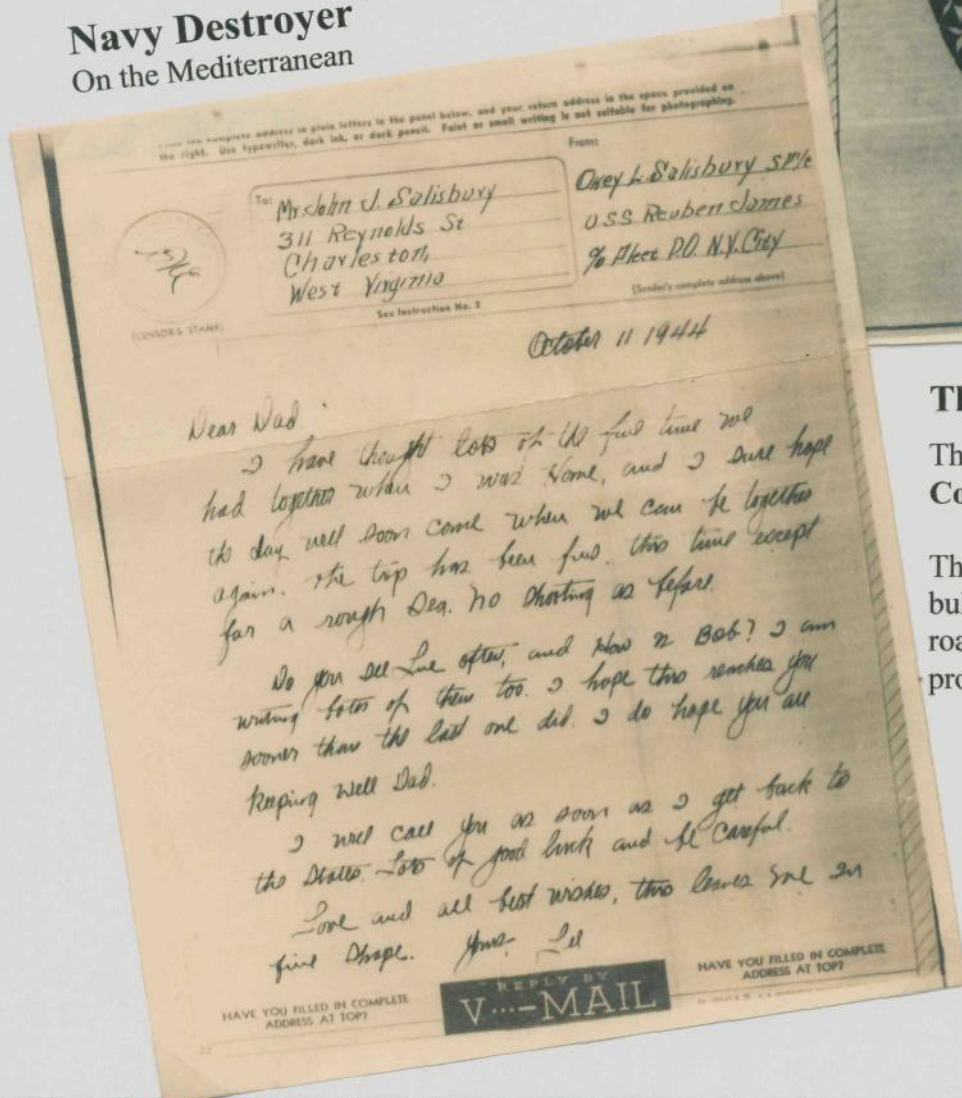 Navy Destroyer
On the Mediterranean
complete address in plain letters in the panel below, and your return address in the space provided on
the right. Use typewriter, dark ink, or dark pencil. Faint or small writing is not suitable for photographing.
To:
Mr. John J. Salisbury
311 Reynolds St
Charleston,
West Virginia
See Instruction No. 2
From:
L. Salisbury
USS Reuben James
% Fleet P.O. N.Y. City
(Sender's complete address above)
(CENSOR'S STAMP)
October 11 1944
Dear Dad
I have thought lots of the fine time we
had together when I was Home, and I sure hope
the day will soon come when we can be together
again. The trip has been fine this time except
for a rough Sea. No shooting as before.
Do you see Lue often, and How is Bob? I am
writing both of them too. I hope this reaches you
sooner than the last one did. I do hope you are
keeping well Dad.
I will call you as soon as I get back to
the States. Lots of good luck and be careful.
Love and all best wishes, this leaves me in
fine shape. Yours- Lee
HAVE YOU FILLED IN COMPLETE
ADDRESS AT TOP?
REPLY BY
V···—MAIL
HAVE YOU FILLED IN COMPLETE
ADDRESS AT TOP?